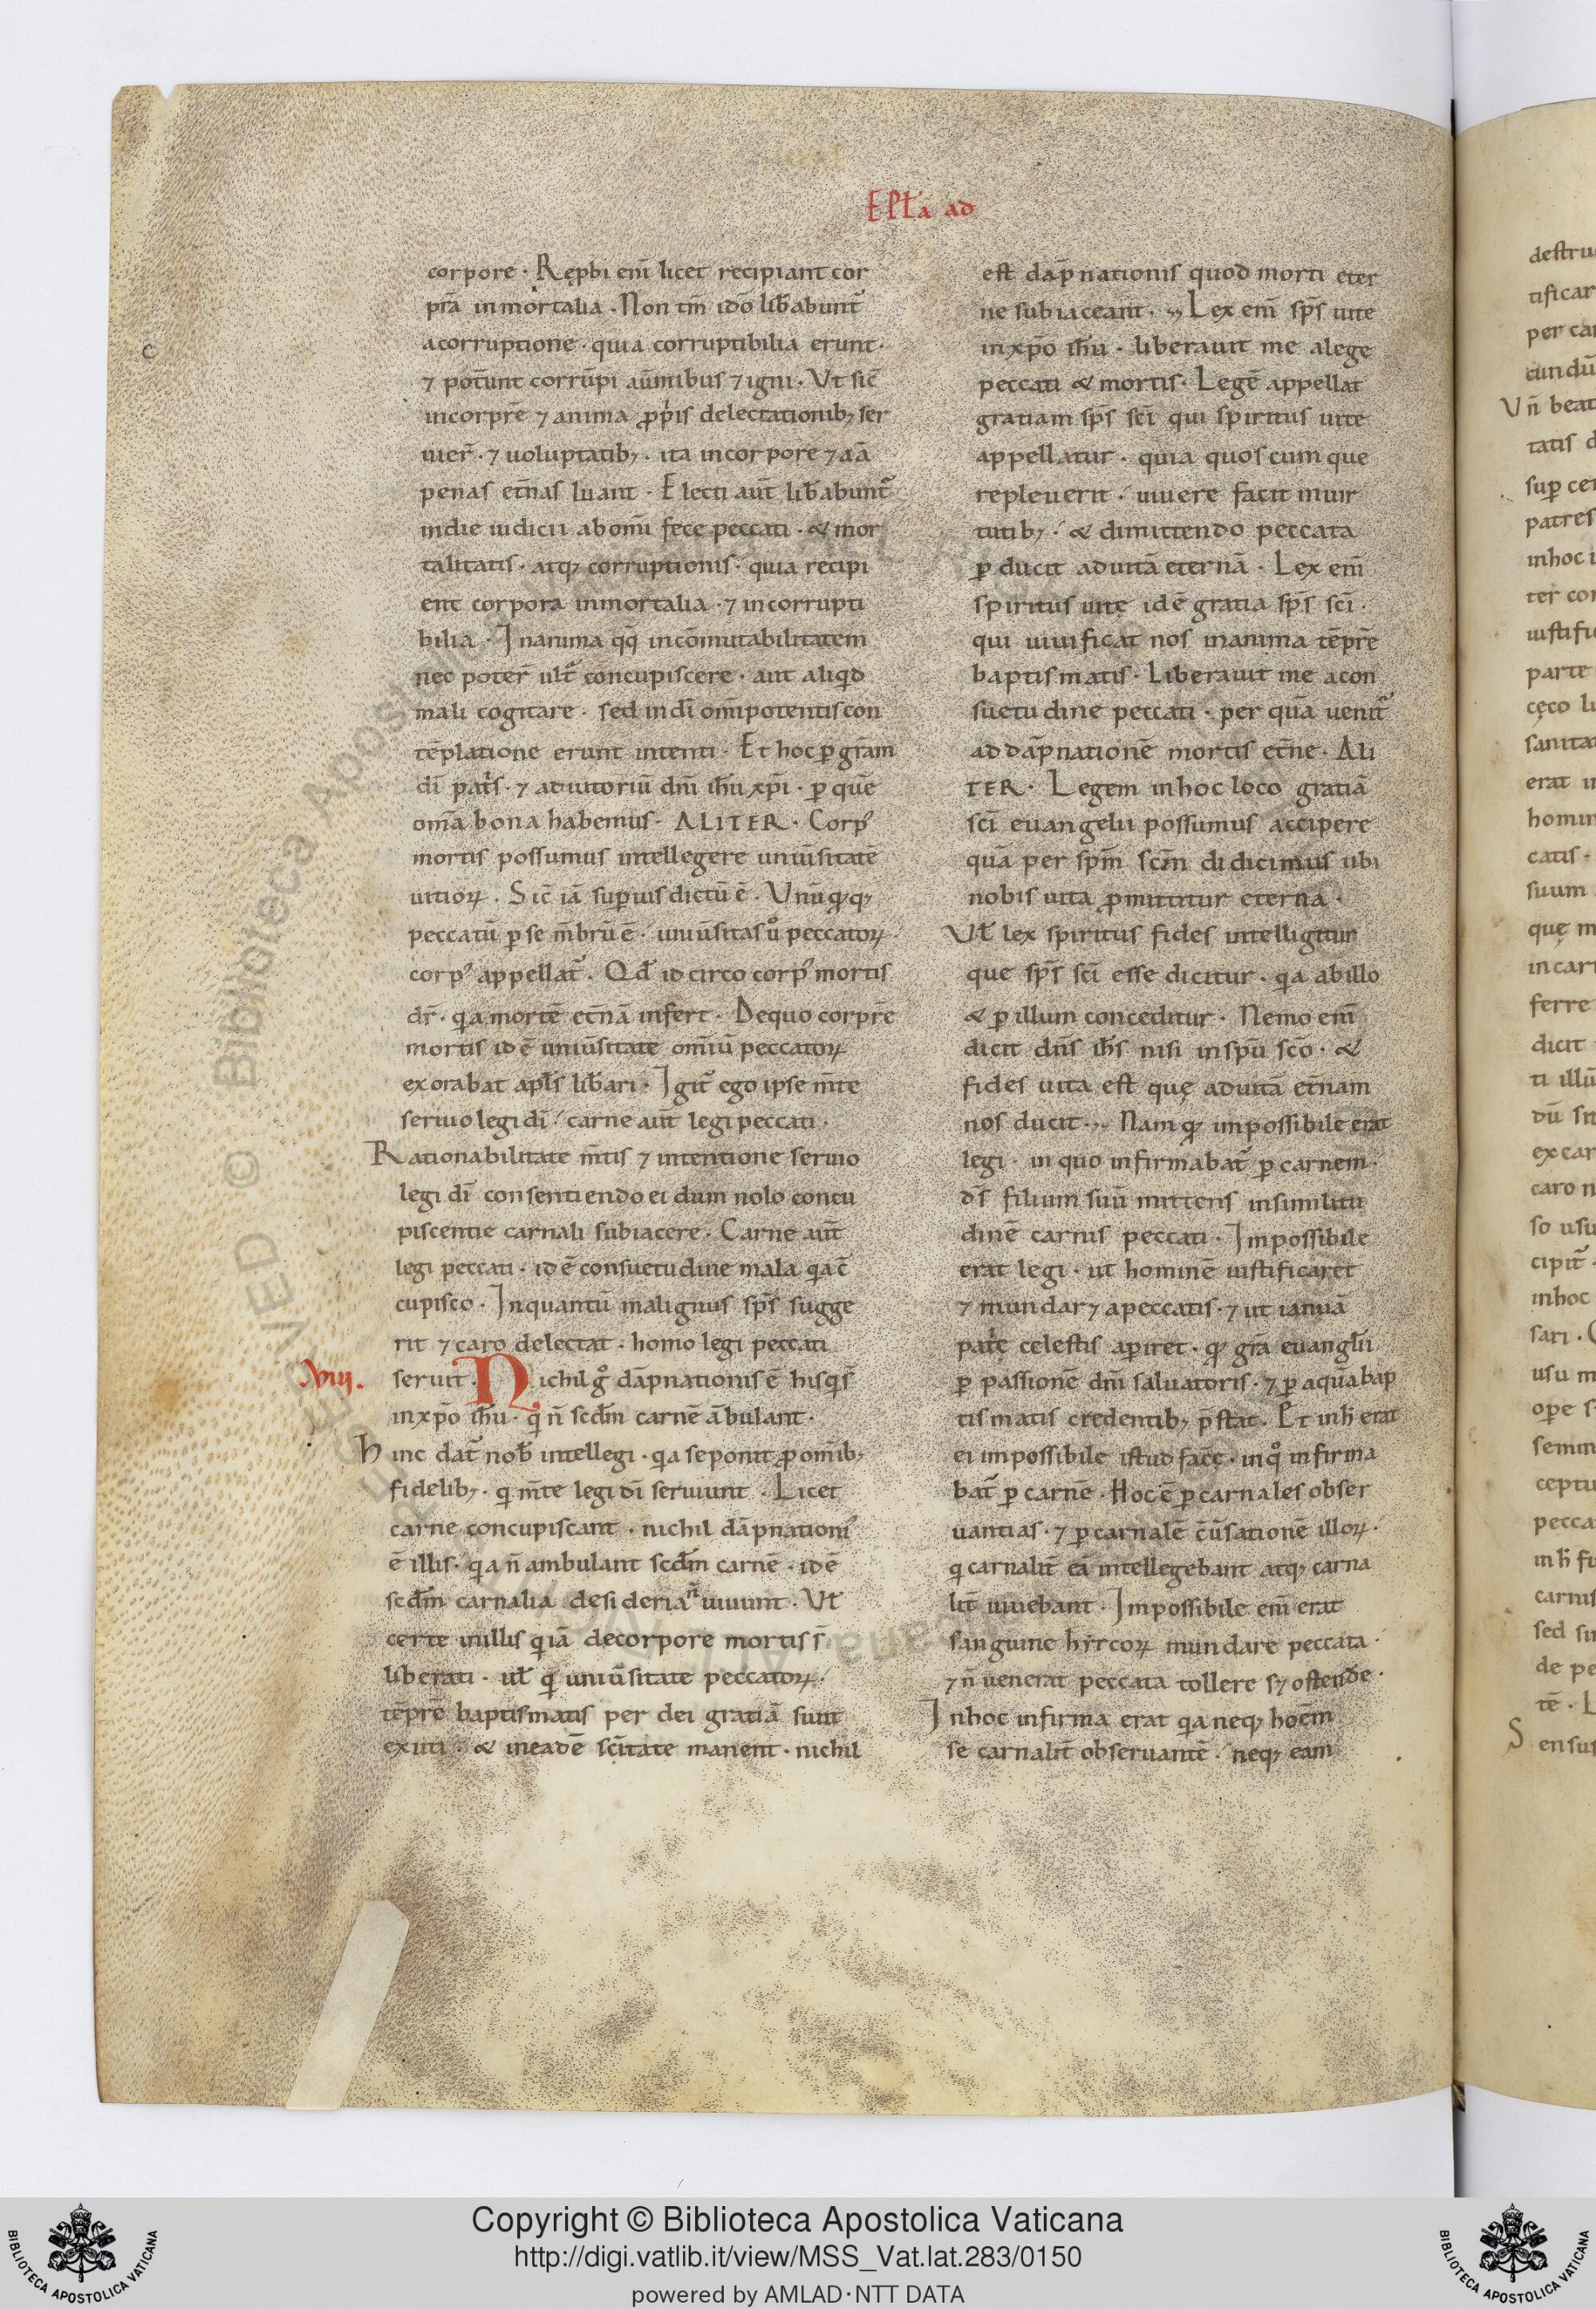 EPLa ad
corpore · Repbi eni̅ licet recipiant cor
pr̄a inmortalia · Non tm̅ ido̅ lib̅abunt̃
acorruptione · quia corruptibilia erunt ·
⁊ pot̅unt corru̅pi au̅mibus ⁊ igni · Vt sic̅
incorpr̅e ⁊ anima ꝓpiis delectationibꝫ ser
uier̅ · ⁊ uoluptatibꝫ · ita incorpore ⁊ aīa
penas et̅nas luant · Electi aut̅ lib̅abunt̃
indie iudicii abomi̅ fece peccati · & mor
talitatis · atqꝫ corruptionis · quia recipi
ent corpora inmortalia · ⁊ incorrupti
bilia · Inanima qq̨ inco̅mutabilitatem
nec poter̅ ult̃ concupiscere · aut aliqd
mali cogitare · sed indi̅ omi̅potentis con
te̅platione erunt intenti · Et hoc ꝑ gr̅am
di̅ patis · ⁊ adiutoriu̅ dn̅i ih̅u xp̅i · ꝑ que̅
om̅a bona habemus · ALITER · Corpꝰ
mortis possumus intellegere uniu̅sitate̅
uitioꝝ · Sic̅ ia̅ superius dictu̅ e̅ · Vnu̅ qꝫqꝫ
peccatu̅ ꝑ se m̅bru̅ e̅ · uniu̅sitas uͦ peccatoꝝ ·
corpꝰ appellat̃ · Qd̅ idcirco corpꝰ mortis
dr̅ · qa morte̅ et̅na̅ infert · Dequo corpr̅e
mortis id e̅ uniu̅sitate omiu̅ peccatoꝝ
exorabat apl̅s lib̅ari · Igit̃ ego ipse m̅te
seruio legi di̅ · carne aut̅ legi peccati ·
Rationabilitate m̅tis ⁊ intentione seruio
legi di̅ consentiendo ei dum nolo concu
piscentie carnali subiacere · Carne aut̅
legi peccati · id e̅ consuetudine mala qa c̅
cupisco · Inquantu̅ malignus sp̅s sugge
rit ⁊ caro delectat · homo legi peccati
VIII.
seruit · Nichil gͦ da̅pnationis e̅ his qi s̅
inxp̅o ih̅u · qi n̅ scdm̅ carne̅ a̅bulant ·
Hinc dat̃ nob̅ intellegi · qa seponit ꝓ omi̅bꝫ
fidelibꝫ · qi m̅te legi di̅ seruiunt · Licet
carne concupiscant · nichil da̅pnationiꝰ
e̅ illis · qa n̅ ambulant scdm̅ carne̅ · id e̅
scdm̅ carnalia desideria n̅ uiuunt · Vl̅
certe in illis qi ia̅ decorpore mortis s̅
liberati · ul̅ qi uniu̅sitate peccatoꝝ ·
te̅pr̅e baptismatis per dei gratia̅ sunt
exuti · & ineade̅ sc̅itate manent · nichil
est da̅pnationis quod morti eter
ne subiaceant · Lex eni̅ sp̅s uite
inxp̅o ih̅u · liberauit me alege
peccati & mortis · Lege̅ appellat
gratiam sp̅s sc̅i qui spiritus uite
appellatur · quia quoscumque
repleuerit · uiuere facit inuir
tutibꝫ · & dimittendo peccata
ꝑducit aduita̅ eterna̅ · Lex eni̅
spiritus uitę id e̅ gratia sp̅s sc̅i ·
qui uiuificat nos inanima te̅pr̅e
baptismatis · Liberauit me acon
suetudine peccati · per qua̅ uenit̃
adda̅pnatione̅ mortis et̅ne · ALI
TER · Legem inhoc loco gratia̅
sc̅i euangelii possumus accipere
qua̅ per sp̅m sc̅m didicimus ubi
nobis uita ꝓmittitur eterna ·
Vl̅ lex spiritus fides intelligitur
que sp̅s sc̅i esse dicitur · qa abillo
& ꝑ illum conceditur · Nemo eni̅
dicit dn̅s ih̅s nisi inspu̅ sc̅o · &
fides uita est quę aduita̅ et̅nam
nos ducit · Nam qꝫ impossibile erat
legi · in quo infirmabat̃ ꝑ carnem ·
d̅s filium suu̅ mittens insimilitu
dine̅ carnis peccati · Impossibile
erat legi · ut homine̅ iustificaret
⁊ mundar⁊ apeccatis · ⁊ ut ianua̅
patię celestis aperiret · qꝫ gr̅a euanglii
ꝑ passione̅ dn̅i saluatoris · ⁊ ꝑ aqua bap
tismatis credentibꝫ p̅stat · Et inh̅ erat
ei impossibile istud fac̅e · inqͦ infirma
bat̃ ꝑ carne̅ · Hoc e̅ ꝑ carnales obser
uantias · ⁊ ꝑ carnale̅ c̅u̅satione̅ illoꝝ ·
qi carnalit̅ ea̅ intellegebant atqꝫ carna
lit̅ uiuebant · Impossibile eni̅ erat
sanguine hyrcoꝝ mundare peccata ·
⁊ n̅ uenerat peccata tollere sꝫ ostende ·
Inhoc infirma erat qa neqꝫ hoe̅m
se carnalit̅ obseruante̅ · neqꝫ eam
Copyright © Biblioteca Apostolica Vaticana
http://digi.vatlib.it/view/MSS_Vat.lat.283/0150
powered by AMLAD·NTT DATA
BIBLIOTECA APOSTOLICA VATICANA
BIBLIOTECA APOSTOLICA VATICANA